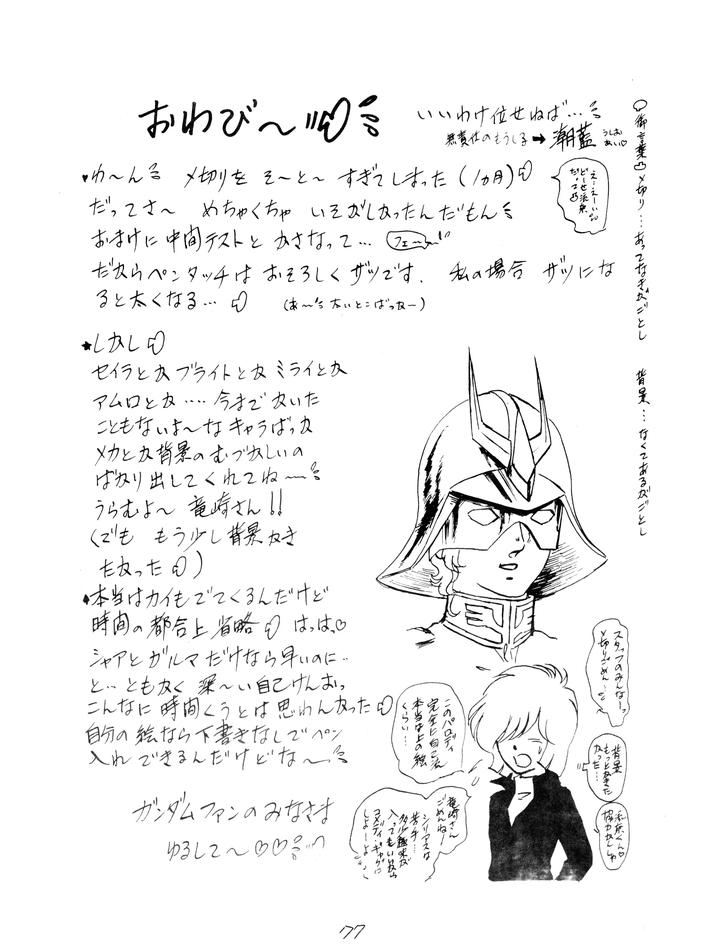 おわび〜
いいわけ位せねば…
無責任のもうしる➡潮藍
うしお
あい♡
♥わ〜ん メ切りを そ〜と〜 すぎてしまった (1ヵ月)
だってさ〜 めちゃくちゃ いそがしかったんだもん
おまけに中間テストと かさなって… フェ〜ん
だからペンタッチは おそろしく ザツです. 私の場合 ザツにな
ると太くなる… (あ〜 太いとこばっかー)
★しかし
セイラとか ブライトとか ミライとか
アムロとか ‥‥ 今まで かいた
こともないよ〜な キャラばっか
メカとか背景の むづかしいの
ばかり出してくれてね〜
うらむよ〜 竜崎さん!!
(でも もう少し背景かき
たかった)
♦本当はカイもでてくるんだけど
時間の都合上 省略 はっはっ♡
シャアとガルマだけなら早いのに‥
と‥ともかく 深〜い自己けんおっ
こんなに時間くうとは思わんかった
自分の絵なら下書きなしでペン
入れできるんだけどな〜
ガンダムファンのみなさま
ゆるして〜♡♡
御言葉 メ切り…あってなきがごとし
背景…なくてあるがごとし
え〜え〜い
ど〜せ派系
だ
スタッフのみんなー
メ切りごめん
背景
もっとかきた
かった…
このパロディ
完全に自己流
本当は上の絵
くらい…
竜崎さん
ごめんねー
シリアスは
苦手…
入ってもいいなら
コメディギャグに
しよーよ
協力
77